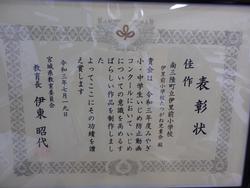 表彰状
佳作
南三陸町立伊里前小学校
伊里前小学校たつがね児童会 殿
貴会は 令和三年度みやぎ
小・中学生いじめ防止動画
コンクールにおいていじめ
についての意識を高めるす
ばらしい作品を制作しまし
た
よってここにその功績を讃
え賞します
令和三年七月一九日
宮城県教育委員会
教育長 伊東昭代